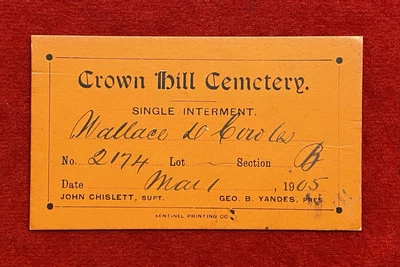 Crown Hill Cemetery.
SINGLE INTERMENT.
Wallace D
No. 2174 Lot ~ Section B
Date Mar 1, 1905
JOHN CHISLETT, SUPT. GEO. B. YANDES, PRES.
SENTINEL PRINTING CO